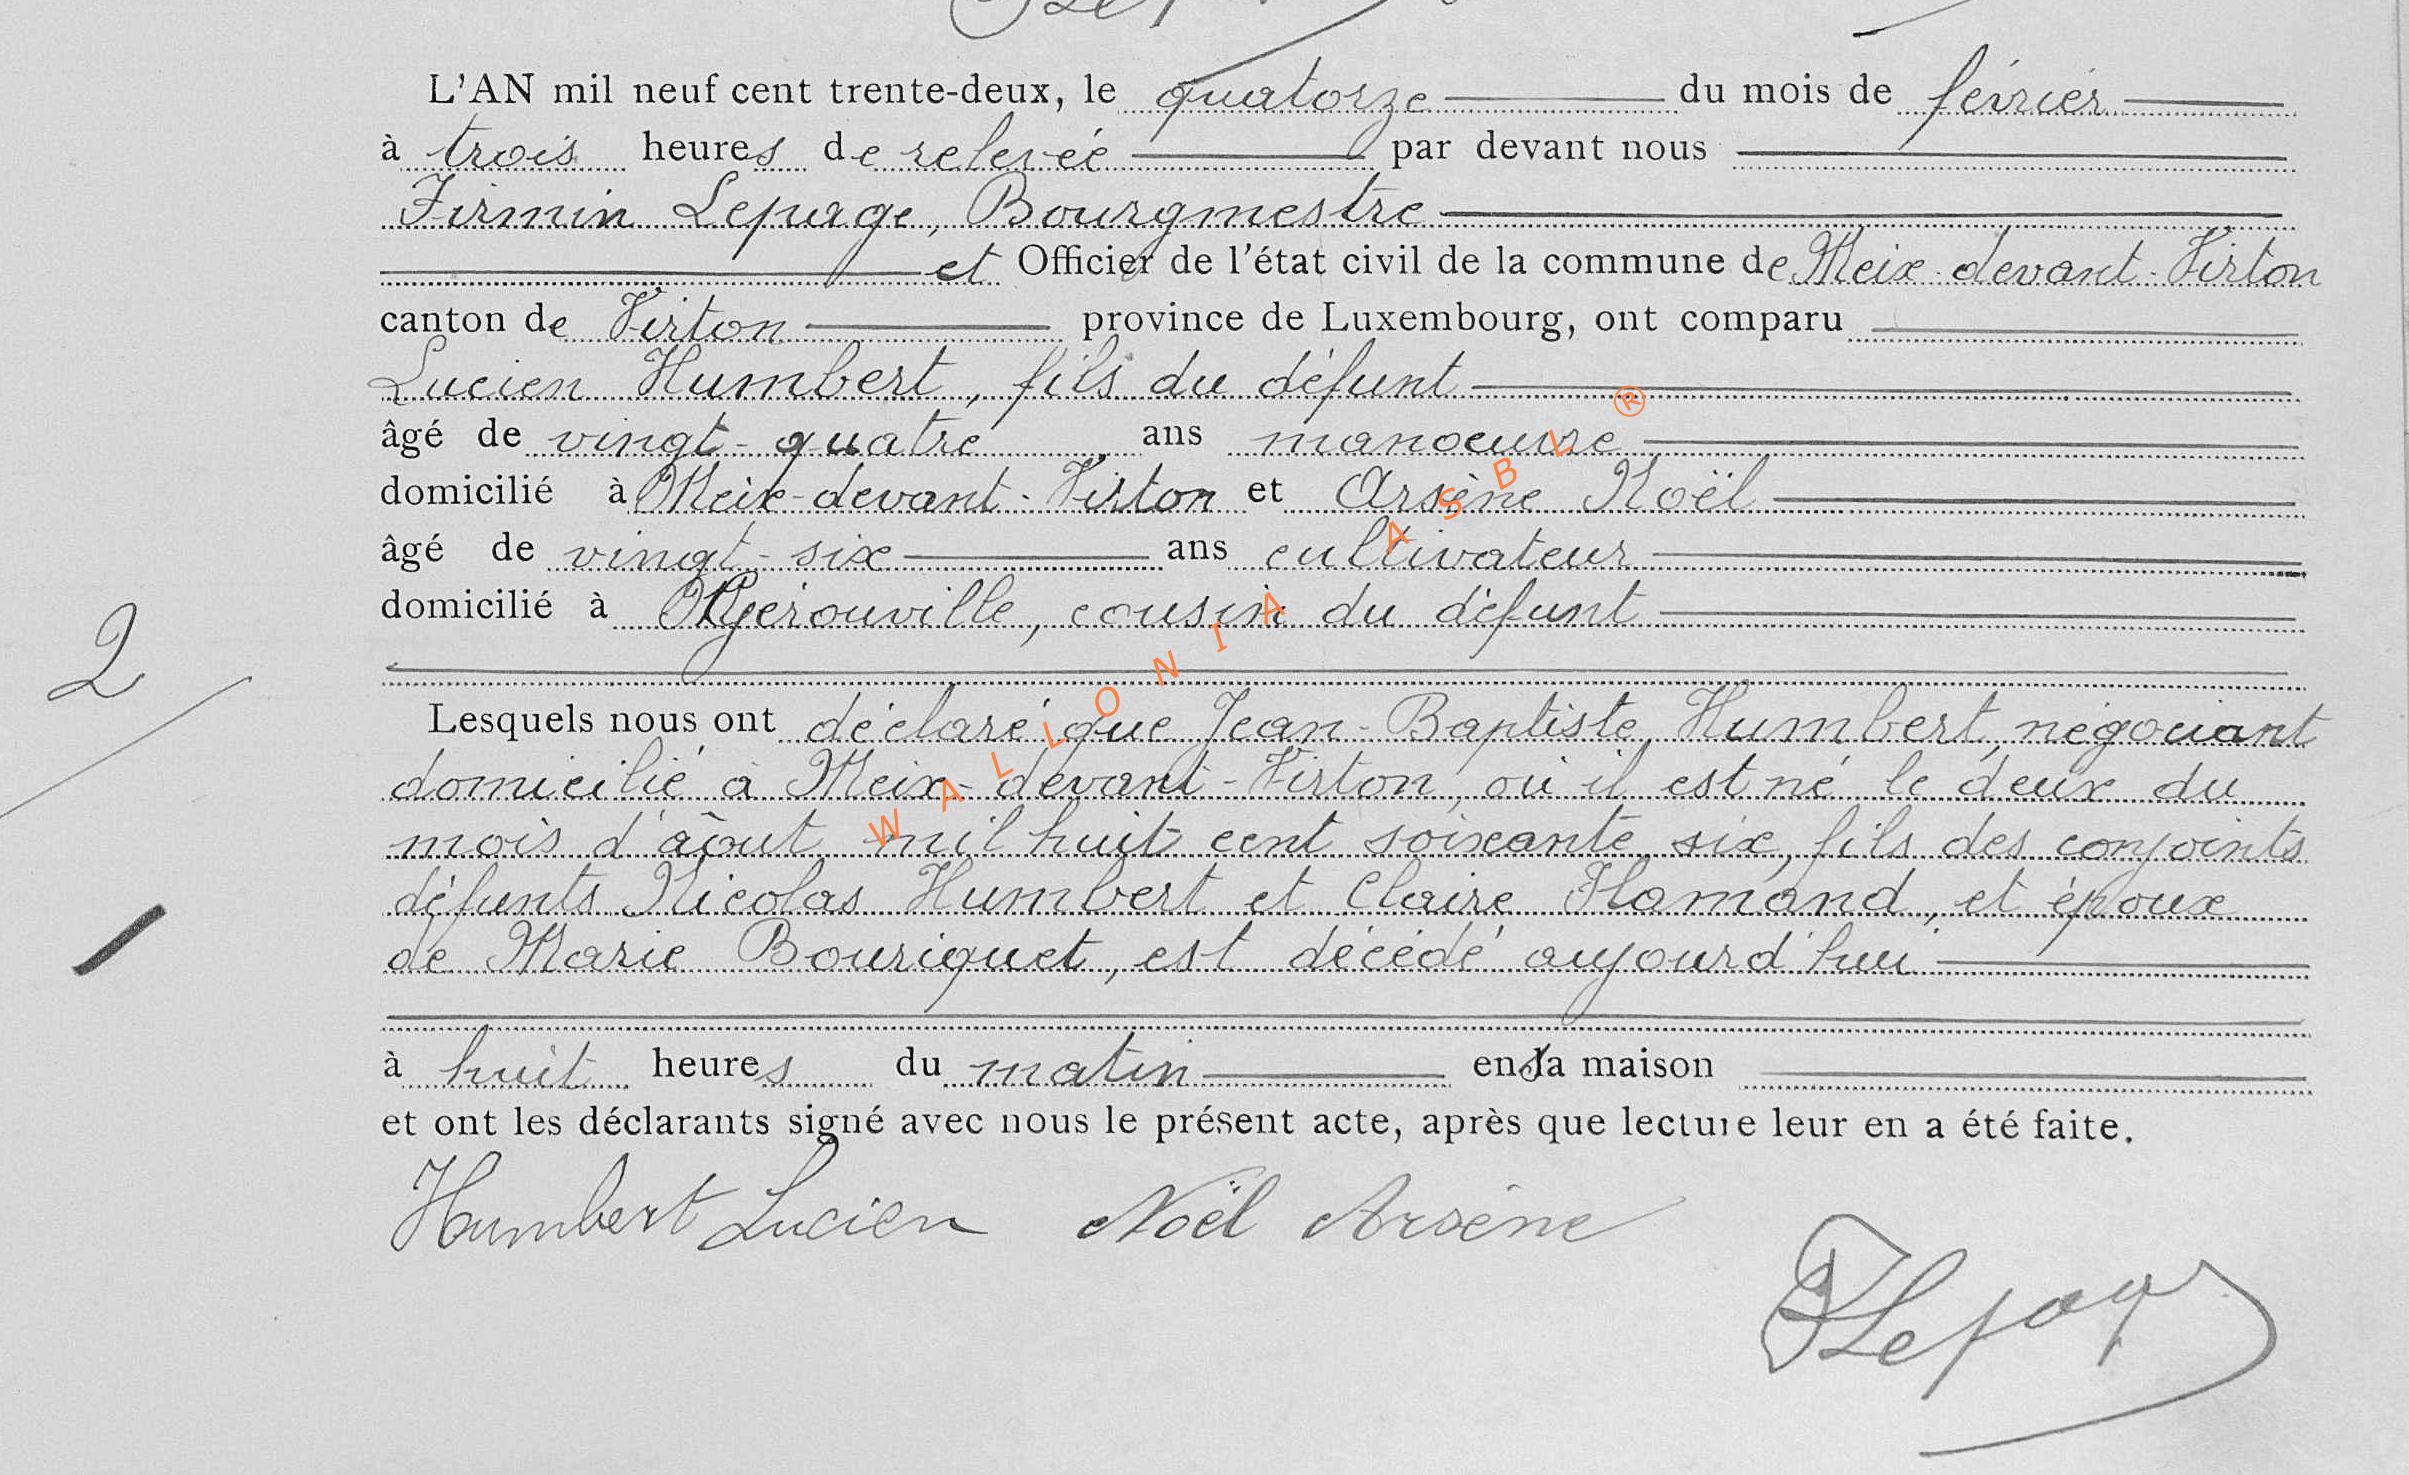 L'AN mil neuf cent trente-deux, le quatorze du mois de février
à trois heures de relevée par devant nous
Firmin Lepage, Bourgmestre
et Officier de l'état civil de la commune de Meix-devant-Virton
canton de Virton province de Luxembourg, ont comparu
Lucien Humbert, fils du défunt
âgé de vingt-quatre ans manoeuvre
domicilié à Meix-devant-Virton et Arsène Noël
âgé de vingt-six ans cultivateur
domicilié à Gérouville, cousin du défunt
2
Lesquels nous ont déclaré que Jean-Baptiste Humbert, négociant
domicilié à Meix-devant-Virton, où il est né le deux du
mois d'août mil huit cent soixante six, fils des conjoints
défunts Nicolas Humbert et Claire Flamand, et époux
de Marie Bouriquet, est décédé aujourd'hui
à huit heures du matin en sa maison
et ont les déclarants signé avec nous le présent acte, après que lecture leur en a été faite.
Humbert Lucien Noël Arsène
FLepage
WALLONIA ASBL ®